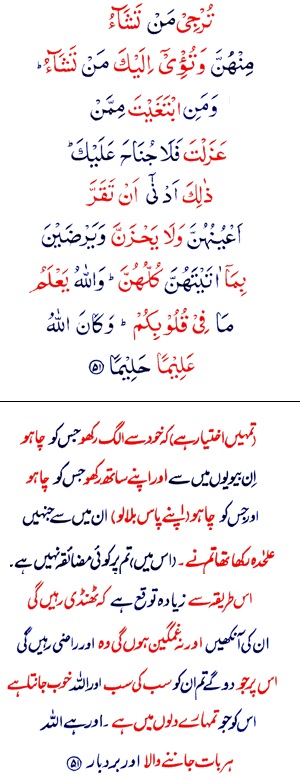 تُرْجِیْ مَنْ تَشَآءُ
مِنْهُنَّ وَتُـْٔوِیْۤ اِلَیْكَ مَنْ تَشَآءُ ؕ
وَمَنِ ابْتَغَیْتَ مِمَّنْ
عَزَلْتَ فَلَا جُنَاحَ عَلَیْكَ ؕ
ذٰلِكَ اَدْنٰۤی اَنْ تَقَرَّ
اَعْیُنُهُنَّ وَلَا یَحْزَنَّ وَیَرْضَیْنَ
بِمَاۤ اٰتَیْتَهُنَّ كُلُّهُنَّ ؕ وَاللّٰهُ یَعْلَمُ
مَا فِیْ قُلُوْبِكُمْ ؕ وَكَانَ اللّٰهُ
عَلِیْمًا حَلِیْمًا ﴿۵۱﴾
(تمہیں اختیار ہے) کہ خود سے الگ رکھو جس کو چاہو
اِن بیویوں میں سے اور اپنے ساتھ رکھو جس کو چاہو
اور جس کو چاہو (اپنے پاس بلالو) ان میں سے جنہیں
علٰحدہ رکھا تھا تم نے۔ (اس میں) تم پر کوئی مضائقہ نہیں ہے۔
اس طریقہ سے زیادہ توقع ہے کہ ٹھنڈی رہیں گی
ان کی آنکھیں اور نہ غمگین ہوں گی وہ اور راضی رہیں گی
اس پر جو دو گے تم ان کو سب کی سب اور اللہ خوب جانتا ہے
اس کو جو تمہارے دلوں میں ہے۔ اور ہے اللہ
ہر بات جاننے والا اور بردبار ﴿۵۱﴾